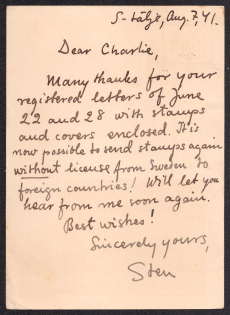 S-tälje, Aug. 7, 41.
Dear Charlie,
Many thanks for your
registered letters of June
22 and 28 with stamps
and covers enclosed. It is
now possible to send stamps again
without license from Sweden to
foreign countries! Will let you
hear from me soon again.
Best wishes!
Sincerely yours,
Sten